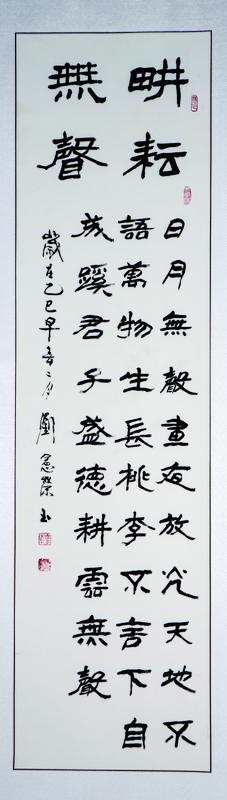 畊耘
無聲
日月無聲晝夜放光天地不
語萬物生長桃李不言下自
成蹊君子盛德耕雲無聲
歲在乙巳早春二月劉憲榮书